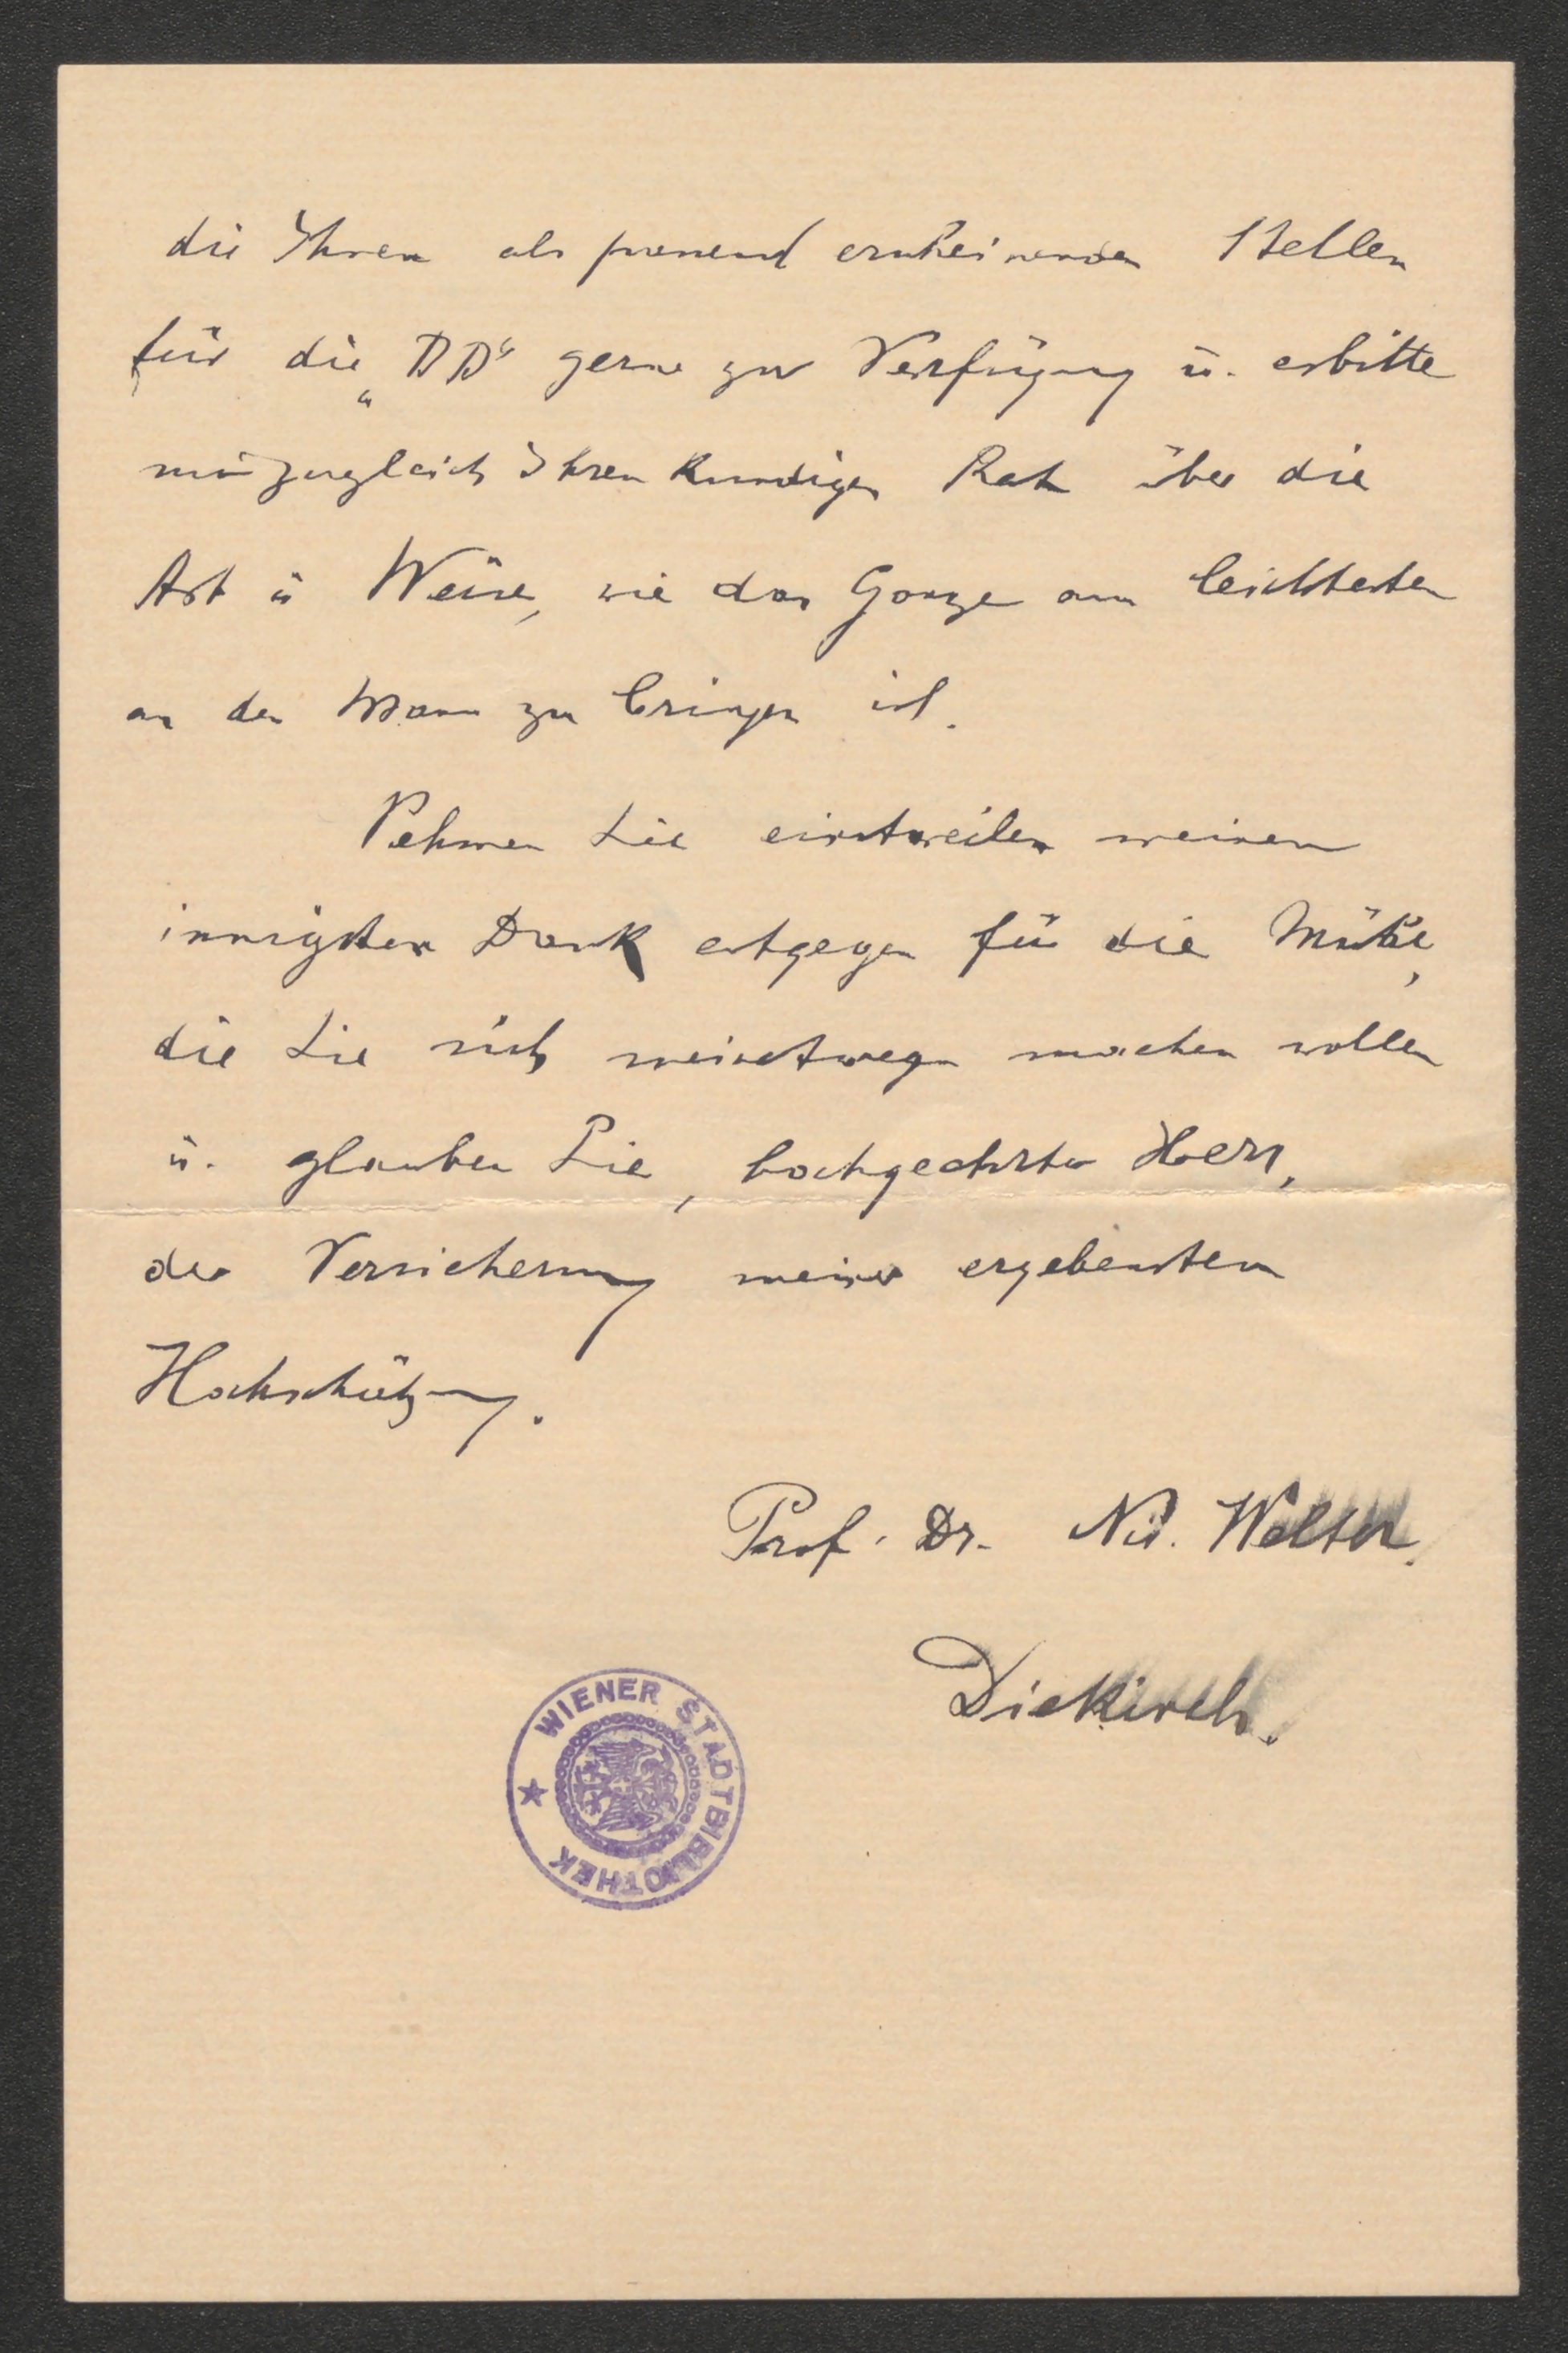 die Ihnen als passend erscheinenden Stellen
für die „DD“ gerne zur Verfügung u. erbitte
mir zugleich Ihren kundigen Rat über die
Art u Weise, wie das Ganze am leichtesten
an den Mann zu bringen ist.
Nehmen Sie einstweilen meinen
innigsten Dank entgegen für die Mühe,
die Sie sich meinetwegen machen wollen
u. glauben Sie, hochgeehrter Herr,
der Versicherung meiner ergebensten
Hochschätzung.
Prof. Dr. Nik. Welter.
Diekirch.
WIENER STADTBIBLIOTHEK